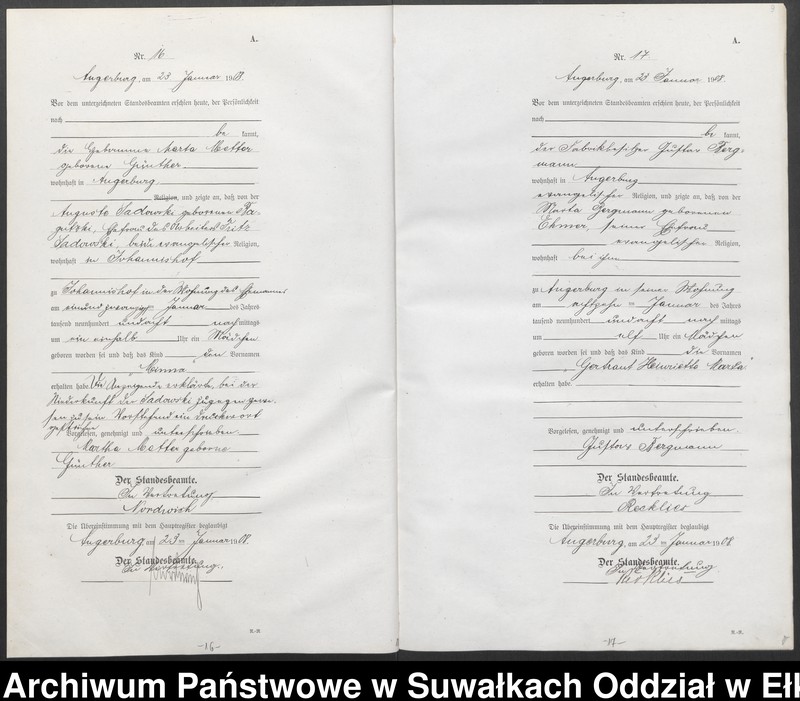 A.
Nr. 16
Angerburg, am 23 Januar 1908.
Vor dem unterzeichneten Standesbeamten erschien heute, der Persönlichkeit
nach
be kannt,
die Hebamme Marta Matter
geborene Günther
wohnhaft in Angerburg
Religion, und zeigte an, daß von der
Auguste Sadowski geborenen
Ehefrau des Arbeiters Fritz
Sadowski, beide evangelischer Religion,
wohnhaft in Johannishof
zu Johannishof in der Wohnung des Ehemannes
am einundzwanzig ten Januar des Jahres
tausend neunhundert und acht nach mittags
um ein einhalb Uhr ein Mädchen
geboren worden sei und daß das Kind den Vornamen
Minna
erhalten habe. Die Anzeigende erklärte, bei der
Niederkunft der Sadowski zugegen gewe-
sen zu sein. Vorstehend ein Druckwort
gestrichen
Vorgelesen, genehmigt und unterschrieben.
Martha Matter geborene
Günther
Der Standesbeamte.
In Vertretung
Die Übereinstimmung mit dem Hauptregister beglaubigt
Angerburg, am 23 ten Januar 1908.
Der Standesbeamte.
In Vertretung.
A.-A.
-16-
3
A.
Nr. 17
Angerburg, am 23 Januar 1908.
Vor dem unterzeichneten Standesbeamten erschien heute, der Persönlichkeit
nach
be kannt,
der Fabrikbesitzer Gustav Berg-
mann
wohnhaft in Angerburg
evangelischer Religion, und zeigte an, daß von der
Marta Bergmann geborenen
Ehmer, seiner Ehefrau
evangelischer Religion,
wohnhaft bei ihm
zu Angerburg in seiner Wohnung
am achtzehn ten Januar des Jahres
tausend neunhundert und acht nach mittags
um elf Uhr ein Mädchen
geboren worden sei und daß das Kind die Vornamen
Gertraut Henriette Marta
erhalten habe.
Vorgelesen, genehmigt und unterschrieben.
Gustav Bergmann
Der Standesbeamte.
In Vertretung
Recklies
Die Übereinstimmung mit dem Hauptregister beglaubigt
Angerburg, am 23 ten Januar 1908
Der Standesbeamte.
In Vertretung
Recklies
A.-A.
-17-
Archiwum Państwowe w Suwałkach Oddział w Ełk